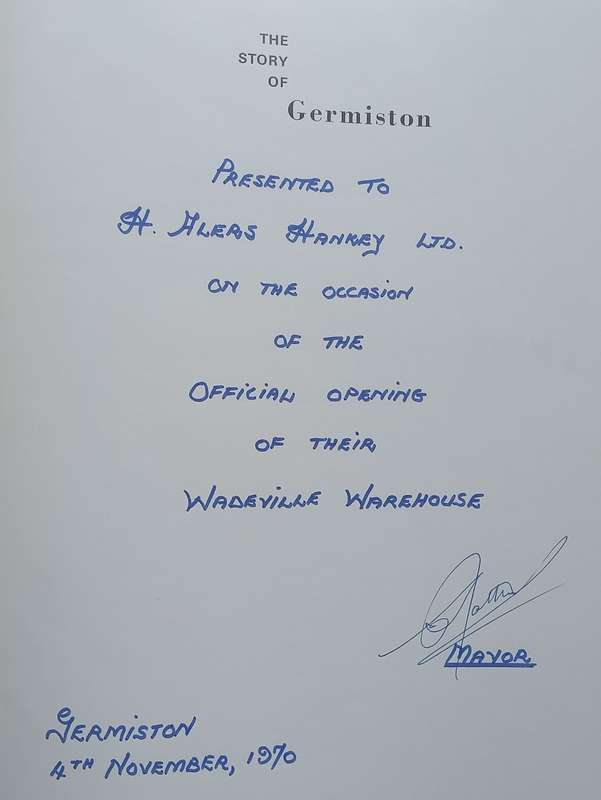 THE
STORY
OF
Germiston
PRESENTED TO
H. ALERS HANKEY LTD.
ON THE OCCASION
OF THE
OFFICIAL OPENING
OF THEIR
WADEVILLE WAREHOUSE
MAYOR
GERMISTON
4TH NOVEMBER, 1970